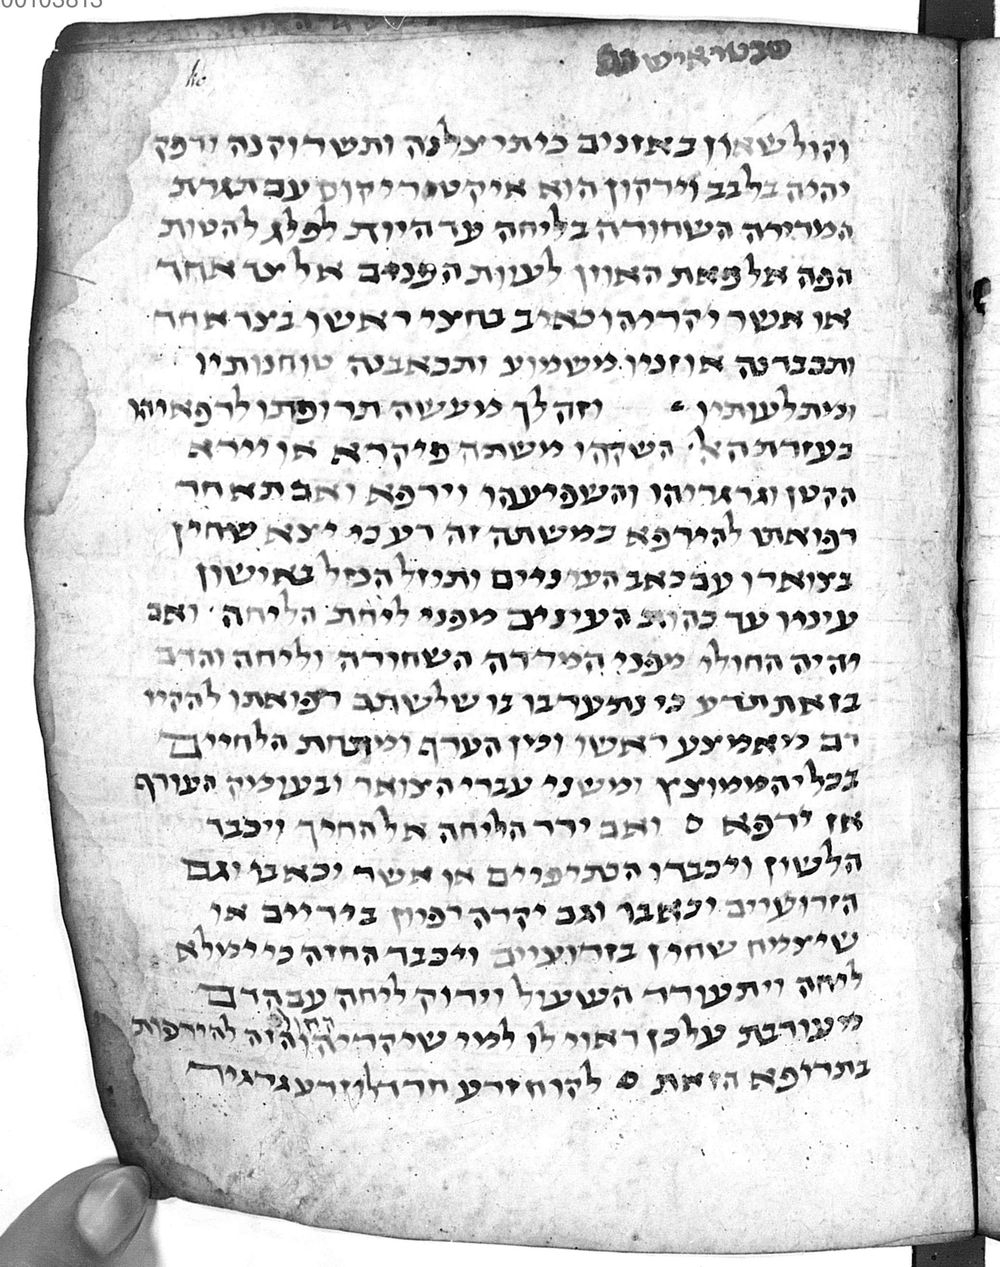 00103813
וקול שאון באזנים כיתי צלנה ותשר וקנה ודפק
יהיה בלבב וירקון הוא איקטריקוס עם תגרת
המרירה השחורה בליחה עד היות לפלג להטות
הפה אל פאת האוזן לעוות הפנים אל צד אחד
או אשר יקריהו כאיב בחצי ראשו בצד אחד
ותכבדנה אוזניו משמוע ותכאבנה טוחנותיו
ומתלעותיו וזה לך מעשה תרופתו לרפאיהו
בעזרת האל השקהו משתה פיקרא או יירא
הקטן וגרגריהו והשפיעהו וירפא ואם תאחר
רפואתו להירפא במשתה זה דע כי יצא שחין
בצוארו עם כאב העינים ותיזל המזל באישון
עיניו עד כהות העינים מפני ליחת הליחה ואם
יהיה החולי מפני המררה השחורה וליחה והדם
בזאת תדע כי נתערבו בו שלשתם רפואתו להקיז
דם מאמצע ראשו ומן הערף ומתחת הלחיים
בכלי הממוצץ ומשני עברי הצואר ובעומק העורף
אז ירפא ואם ירד הליחה אל החיך ויכבד
הלשון ויכבדו הכתיפיים או אשר יכאבו וגם
הזרועיים יכאבו וגם יקרה רפיון בידיים או
שיצמח שחין בזרועיים ויכבד החזה כי ימלא
ליחה ויתעורר השעול וירוק ליחה עם הדם
מעורבת על כן ראוי לו למי שיקריהו החולי הזה להירפות
בתרופא הזאת לקוח זרע חרדל וזרע גרגיר